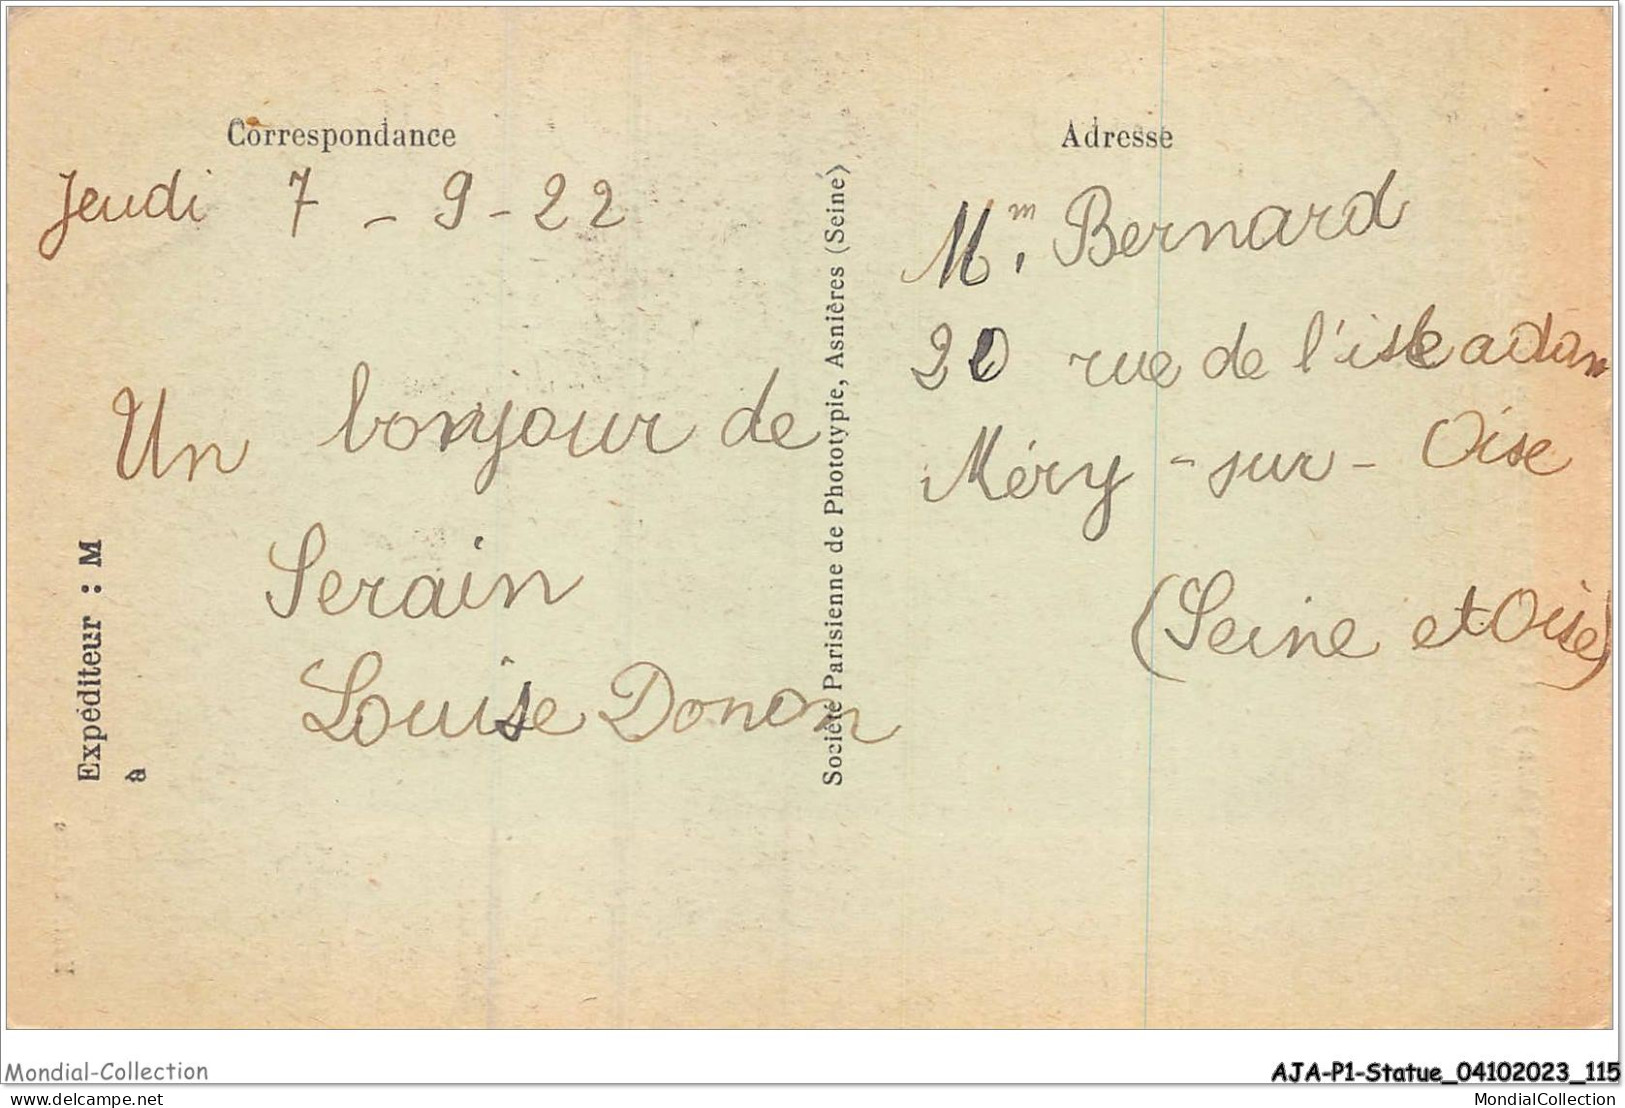 Correspondance
Jeudi 7 - 9 - 22
Un bonjour de
Serain
Louise Donon
Expéditeur : M
à
Société Parisienne de Phototypie, Asnières (Seine)
Adresse
Mm. Bernard
20 rue de l'isle adam
Méry - sur - Oise
(Seine et Oise)
Mondial-Collection
AJA-P1-Statue_04102023_115
delcampe.net
MondialCollection